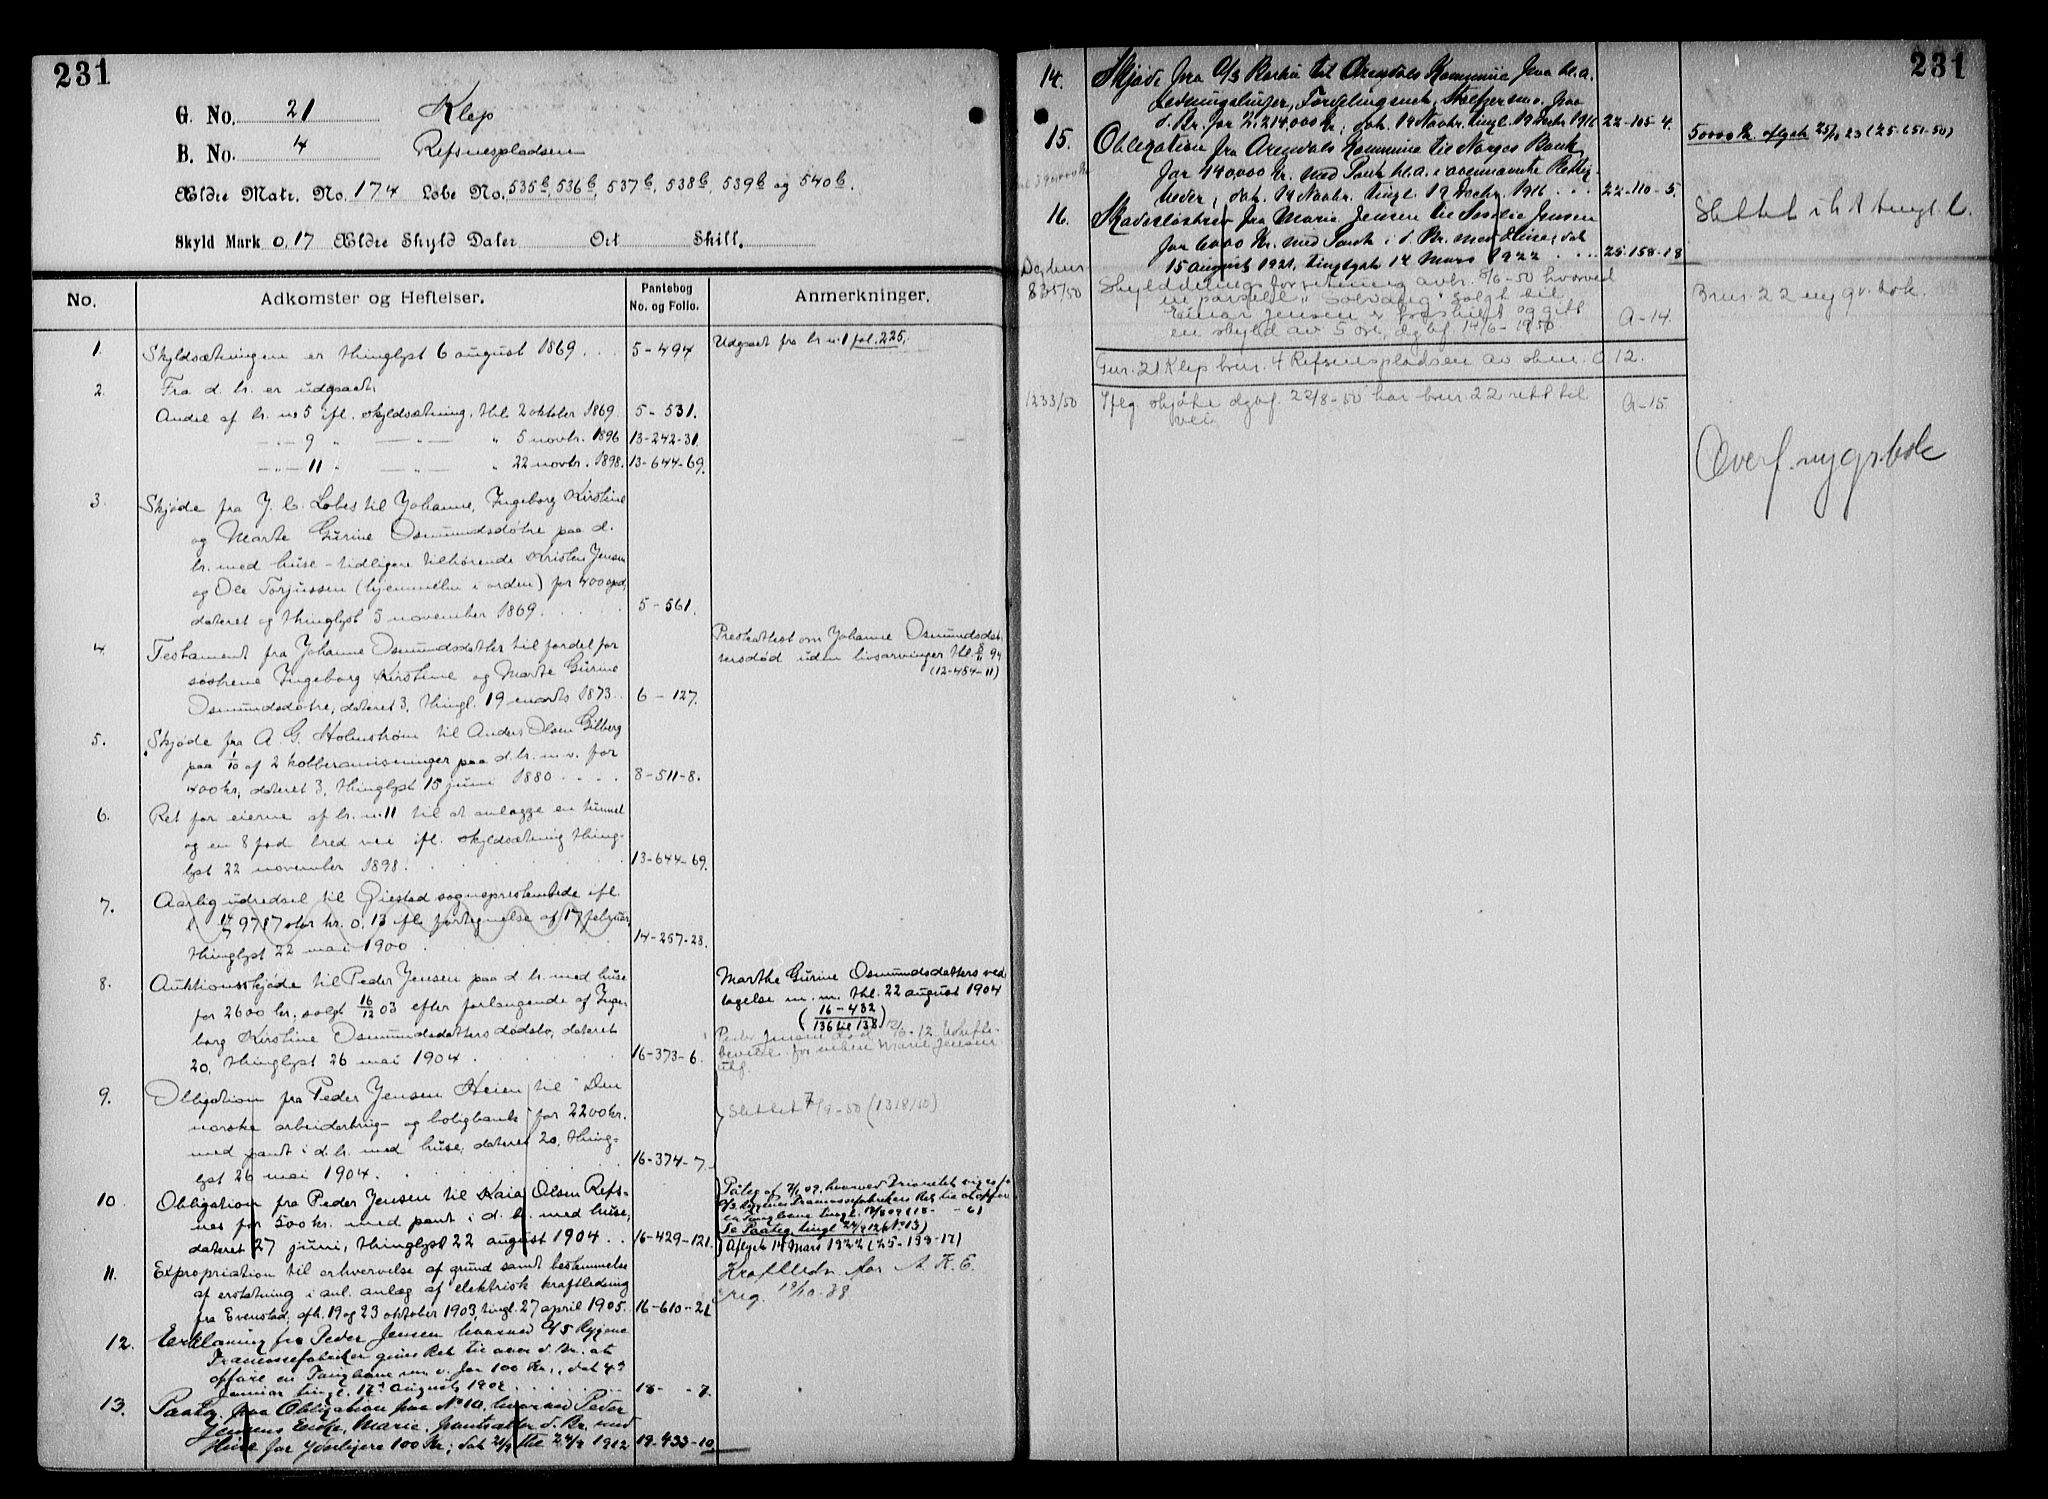 231
G. No. 21 Klep
B. No. 4 Refsnespladsen
Ældre Matr. No. 174 Løbe No. 535b, 536b, 537b, 538b, 539b og 540b.
Skyld Mark 0,17 Ældre Skyld Daler Ort Skill.
No. Adkomster og Heftelser. Pantebog No. og Folio. Anmerkninger.
1. Skyldsætningen er thinglyst 6 august 1869 . . 5-494 Udgaaet fra br. n. 1 fol. 225.
2. Fra d. br. er udgaaet:
Andel af br. n. 5 ifl. skyldsætning, thl. 2 oktober 1869. 5-531.
-"- 9 " -"- " 5 novbr. 1896 13-242-31.
-"- 11 " -"- " 22 novbr. 1898. 13-644-69.
3. Skjøde fra J. C. Løbes til Johanne, Ingeborg Kirstine
og Marte Gurine Osmundsdøtre paa d.
br. med huse - tidligere tilhørende Kristen Jensen
og Ole Torjussen (hjemmelen i orden) for 400 spd,
dateret og thinglyst 5 november 1869. . . . 5-561.
4. Testament fra Johanne Osmundsdatter til fordel for
søstrene Ingeborg Kirstine og Marte Gurine
Osmundsdøtre, dateret 3, thingl. 19 marts 1873. . 6-127.
Prestattest om Johanne Osmundsdat-
tersdød uden livsarvinger thl. 94
(12-454-11)
5. Skjøde fra A. G. Holmstrøm til Anders Olsen Gilberg
paa 1/10 af 2 kobberanvisninger paa d. br. m. v. for
400 kr, dateret 3, thinglyst 15 juni 1880 . . . . 8-511-8.
6. Ret for eierne af br. n. 11 til at anlægge en tunnel
og en 8 fod bred vei ifl. skyldsætning thing-
lyst 22 november 1898. 13-644-69.
7. Aarlig udredsel til Øiestad sogneprestembede ifl.
l. 14/7 97 stor kr. 0,13 ifl. fortegnelse af 17 februar,
thinglyst 22 mai 1900 . . . 14-257-28.
8. Auktionsskjøde til Peder Jensen paa d. br. med huse
for 2600 kr, solgt 16/12 03 efter forlangende af Inge-
borg Kirstine Osmundsdatters dødsbo, dateret
20, thinglyst 26 mai 1904 . . . 16-373-6.
Marthe Gurine Osmundsdatters ved-
tagelse m. m. thl. 22 august 1904
(16-432
136 til 138)
Peder Jensen død 12/6-12. Uskifte-
bevill. for enken Marie Jensen
utf.
9. Obligation fra Peder Jensen Heien til "Den
norske arbeiderbrug- og boligbank" for 2200 kr.
med pant i d. br. med huse, dateret 20, thing-
lyst 26 mai 1904. . . . 16-374-7.
Slettet 7/9-50 (1318/50)
10. Obligation fra Peder Jensen til Kaia Olsen Refs-
nes for 500 kr. med pant i d. br. med huse,
dateret 27 juni, thinglyst 22 august 1904 . . 16-429-121.
Påteg. af 7/1 09, hvorved Prioritet viges for
A/S Rygenes Træmassefabrikers Ret til at opføre
en Taugbane tingl. 17/8 09 (18- -61
Se Paateg. tingl. 24/9 12 (No 13)
Aflyst 14 Mars 1922 (25-158-17)
11. Expropriation til erhvervelse af grund samt bestemmelse
af erstatning i anl. anlæg af elektrisk kraftledning
fra Evenstad, afh. 19 og 23 oktober 1903, tingl. 27 april 1905. 16-610-21
Kraftledn. for A. K. E.
reg. 19/10-38
12. Erklæring fra Peder Jensen hvorved A/S Rygene
Træmassefabriker gives Ret til over d. Br. at
opføre en Taugbane m. v. for 100 Kr., dat. 4de
Januar tingl. 17de August 1909 . . . 18- -7.
13. Paateg. paa Obligation paa No 10, hvorved Peder
Jensens Enke, Marie, pantsætter d. Br. med
Huse for yderligere 100 Kr; dat. 21/9 thl. 24/9 1912 19-433-10
231
14. Skjøde fra A/S Barbu til Arendals Kommune paa bl.a.
Ledningslinjer, Fordelingsnet, Stolper m.v. paa
d. Br. for 2,214,000 Kr, dat. 14 Novbr. tingl. 19 Decbr 1916 22-105-4.
15. Obligation fra Arendals Kommune til Norges Bank
for 440000 Kr. med Pant bl.a. i ovennævnte Rettig-
heder, dat. 14 Novbr. tingl. 19 Decbr. 1916 . . 22-110-5.
50000 Kr. aflyst 25/10 23 (25-651-50)
16. Skadesløsbrev fra Marie Jensen til Josefie Jensen
for 6000 Kr. med Pant i d. Br. med Huse, dat.
15 August 1921, tinglyst 14 Mars 1922 . . . 25-158-18
Slettet i h. t. tingl. l.
Dagbnr.
835/50 Skylddelingsforretning avh. 8/6-50 hvorved
en parsell "Solvang" solgt til
Einar Jensen er fraskilt og gitt
en skyld av 5 øre, dgbf. 14/6-1950 A-14.
Bnr. 22 ny gr. bok.
Gnr. 21 Klep bnr. 4 Refsnespladsen av skm. 0.12.
1233/50 Ifølg. skjøte dgbf. 22/8-50 har bnr. 22 rett til
vei A-15.
Overf. ny gr. bok